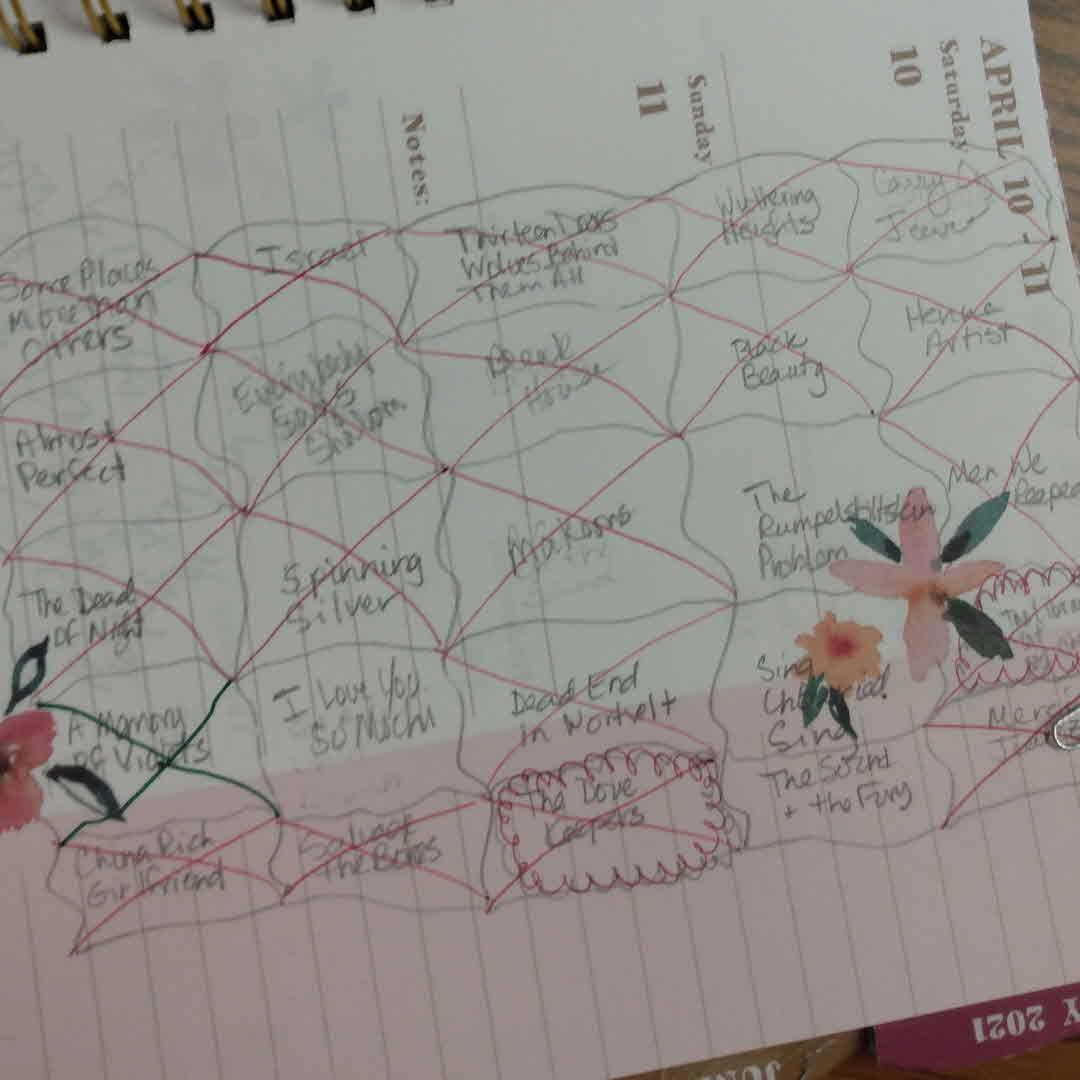 APRIL 10 - 11
Saturday
10
Sunday
11
Notes:
Some Places
More than
Others
Israel
Thirteen Doors
Wolves Behind
Them All
Wuthering
Heights
Almost
Perfect
Everybody
Says
Shalom
Bleak
House
Black
Beauty
Henna
Artist
The Dead
of Night
Spinning
Silver
The
Rumpelstiltskin
Problem
Men We
Reaped
A Memory
of Violets
I Love You
So Mochi
Dead End
in Norvelt
Sing
Sing
China Rich
Girlfriend
Salt
The Bones
The Dove
Keepers
The Sound
+ the Fury
Y 2021